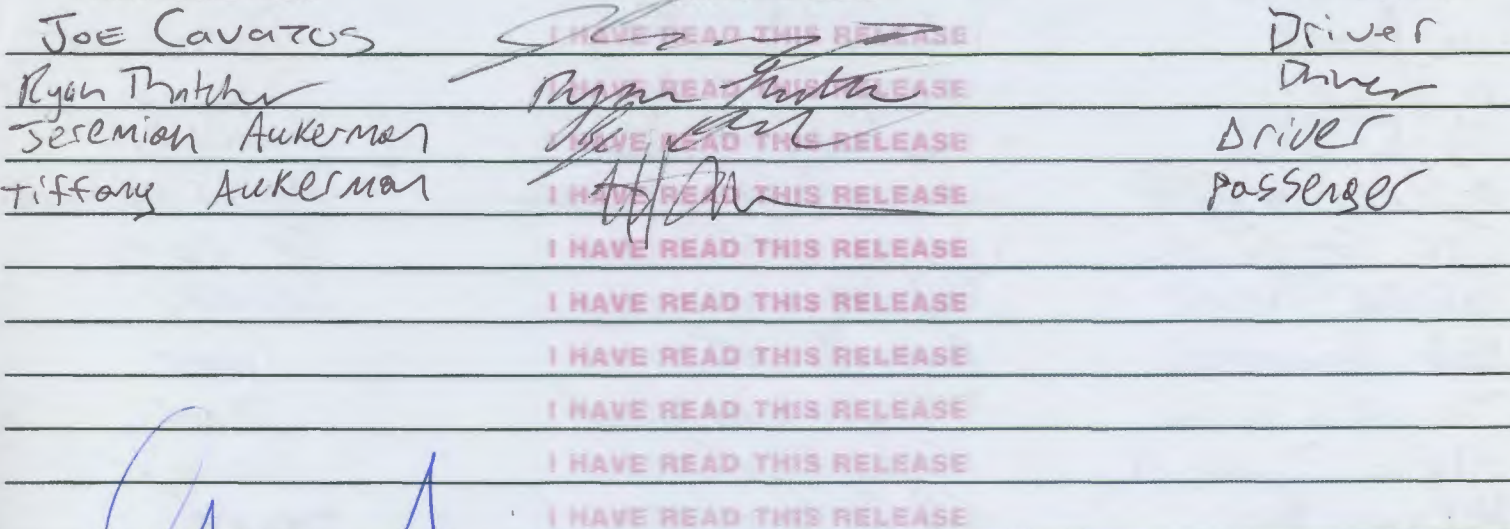 Joe Cavazos I HAVE READ THIS RELEASE Driver
Ryan Thatcher I HAVE READ THIS RELEASE Driver
Jeremiah Aukerman I HAVE READ THIS RELEASE Driver
Tiffany Aukerman I HAVE READ THIS RELEASE passenger
I HAVE READ THIS RELEASE
I HAVE READ THIS RELEASE
I HAVE READ THIS RELEASE
I HAVE READ THIS RELEASE
I HAVE READ THIS RELEASE
I HAVE READ THIS RELEASE